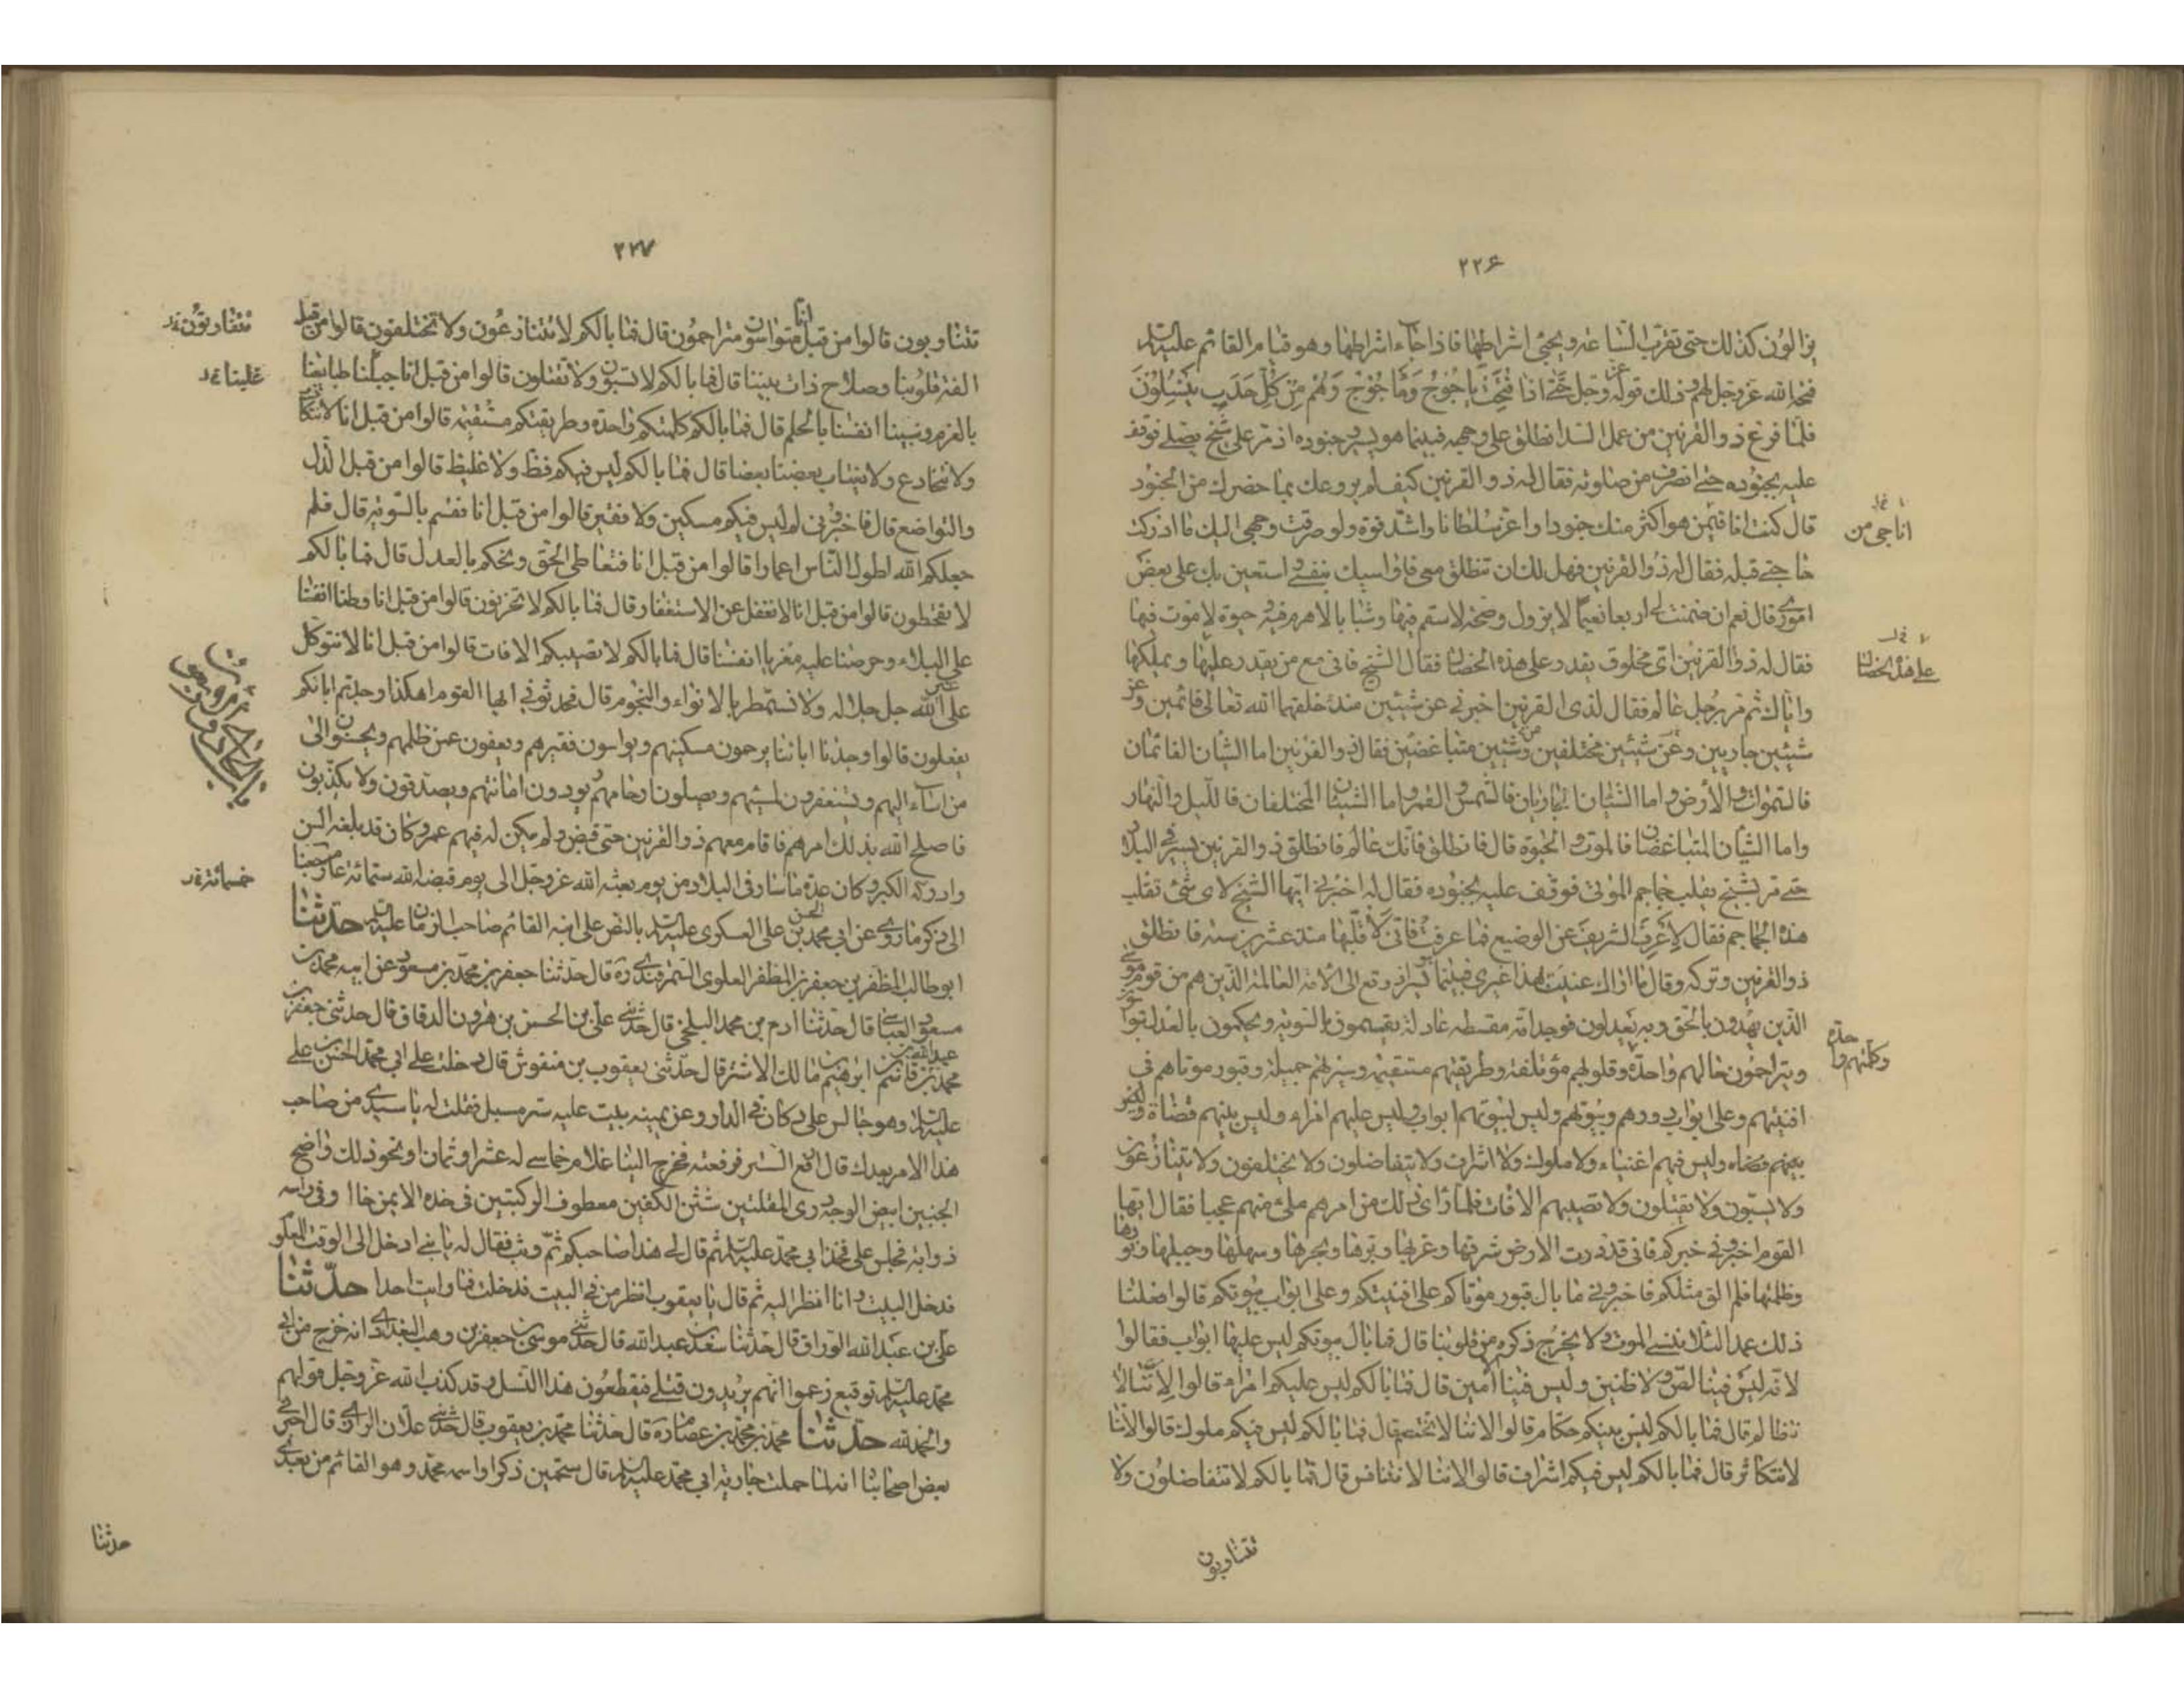 ٢٢۶
يزالون كذلك حتى تقرب الساعة ويجئ اشراطها فاذا جاء اشراطها وهو قيام القائم عليه السلم
فتحه الله عز وجل لهم وذلك قوله عز وجل حتى اذا فتحت يأجوج ومأجوج وهم من كل حدب ينسلون
فلما فرغ ذو القرنين من عمل السد انطلق على وجهه فبينما هو يسير وجنوده اذ مر على شيخ يصلى فوقف
عليه بجنوده حتى انصرف من صلوته فقال له ذو القرنين كيف لم يروعك بما حضرك من الجنود
قال كنت اناجى من هو اكثر منك جنودا واعز سلطانا واشد قوة ولو صرفت وجهى اليك ما ادركت
حاجتى قبله فقال له ذو القرنين فهل لك ان تنطلق معى فاواسيك بنفسى واستعين بك على بعض
امورى قال نعم ان ضمنت لى اربعا نعيما لا يزول وصحة لا سقم فيها وشبابا لا هرم فيه وحيوة لا موت فيها
فقال له ذو القرنين اى مخلوق يقدر على هذه الخصال فقال الشيخ فانى مع من يقدر عليها ويملكها
واياك ثم مر برجل عالم فقال لذى القرنين اخبرنى عن شيئين منذ خلقهما الله تعالى قائمين وعن
شيئين جاريين وعن شيئين مختلفين وشيئين متباغضين فقال ذو القرنين اما الشيئان القائمان
فالسموات والأرض واما الشيئان الجاريان فالشمس والقمر واما الشيئان المختلفان فالليل والنهار
واما الشيئان المتباغضان فالموت والحيوة قال فانطلق فانك عالم فانطلق ذو القرنين يسير فى البلاد
حتى مر بشيخ يقلب جماجم الموتى فوقف عليه بجنوده فقال له اخبرنى ايها الشيخ لاى شئ تقلب
هذه الجماجم فقال لاعرف الشريف عن الوضيع فما عرفت فانى لاقلبها منذ عشرين سنة فانطلق
ذو القرنين وتركه وقال ما اراك عنيت بهذا غيرى فبينما يسير اذ وقع الى الأمة العالمة الذين هم من قوم موسى
الذين يهدون بالحق وبه يعدلون فوجد امة مقسطة عادلة يقسمون بالسوية ويحكمون بالعدل
ويتراحمون حالهم واحدة وقلوبهم مؤتلفة وطريقتهم مستقيمة وسيرتهم جميلة وقبور موتاهم فى
افنيتهم وعلى ابواب دورهم وبيوتهم وليس لبيوتهم ابواب وليس عليهم امراء وليس بينهم قضاة وليس
بينهم قضاة وليس فيهم اغنياء ولا ملوك ولا اشراف ولا يتفاضلون ولا يختلفون ولا يتنازعون
ولا يسبون ولا يقتتلون ولا تصيبهم الافات فلما راى ذلك من امرهم ملئ منهم عجبا فقال ايها
القوم اخبرونى خبركم فانى قد درت الارض شرقها وغربها وبرها وبحرها وسهلها وجبلها ونورها
وظلمتها فلم الق مثلكم فاخبرونى ما بال قبور موتاكم على افنيتكم وعلى ابواب بيوتكم قالوا فعلنا
ذلك عمدا لئلا ننسى الموت ولا يخرج ذكره من قلوبنا قال فما بال بيوتكم ليس عليها ابواب فقالوا
لانه ليس فينا لص ولا ظنين وليس فينا الا أمين قال فما بالكم ليس عليكم امراء قالوا لاننا لا
نتظالم قال فما بالكم ليس بينكم حكام قالوا لاننا لا نختصم قال فما بالكم ليس فيكم ملوك قالوا لاننا
لا نتكاثر قال فما بالكم ليس فيكم اشراف قالوا لاننا لا نتنافس قال فما بالكم لا تتفاضلون ولا
تتفاوتون
اناجى من
على هذه الخصال
وكلمتهم واحدة
٢٢٧
تتفاوتون قالوا من قبل انا متواسون متراحمون قال فما بالكم لا تتنازعون ولا تختلفون قالوا من قبل
الفة قلوبنا وصلاح ذات بيننا قال فما بالكم لا تسبون ولا تقتلون قالوا من قبل انا جبلنا طبايعنا
بالعزم وسسنا انفسنا بالحلم قال فما بالكم كلمتكم واحدة وطريقتكم مستقيمة قالوا من قبل انا لا نتكاذب
ولا نتخادع ولا يغتاب بعضنا بعضا قال فما بالكم ليس فيكم فظ ولا غليظ قالوا من قبل الذل
والتواضع قال فاخبرونى لم ليس فيكم مسكين ولا فقير قالوا من قبل انا نقسم بالسوية قال فلم
جعلكم الله اطول الناس اعمارا قالوا من قبل انا نتعاطى الحق ونحكم بالعدل قال فما بالكم
لا تقحطون قالوا من قبل انا لا نغفل عن الاستغفار قال فما بالكم لا تحزنون قالوا من قبل انا وطنا انفسنا
على البلاء وحرصنا عليه فعزينا انفسنا قال فما بالكم لا تصيبكم الافات قالوا من قبل انا لا نتوكل
على غير الله جل جلاله ولا نستمطر بالانواء والنجوم قال فحدثونى ايها القوم اهكذا وجدتم اباءكم
يفعلون قالوا وجدنا اباءنا يرحمون مسكينهم ويواسون فقيرهم ويعفون عمن ظلمهم ويحسنون الى
من اساء اليهم ويستغفرون لمسيئهم ويصلون ارحامهم ويودون امانتهم ويصدقون ولا يكذبون
فاصلح الله بذلك امرهم فاقام معهم ذو القرنين حتى قبض ولم يكن له فيهم عمر وكان قد بلغه السن
وادركه الكبر وكان عدة ما سار فى البلاد من يوم بعثه الله عز وجل الى يوم قبضه الله ستمائة عام رجعنا
الى ذكر ما روى عن ابى محمد الحسن بن على العسكرى عليه السلم بالنص على ابنه القائم صاحب الزمان عليه السلم حدثنا
ابو طالب المظفر بن جعفر بن المظفر العلوى السمرقندى ره قال حدثنا جعفر بن محمد بن مسعود عن ابيه محمد بن
مسعود العياشى قال حدثنا ادم بن محمد البلخى قال حدثنى على بن الحسن بن هرون الدقاق قال حدثنى جعفر بن
محمد بن عبد الله بن قاسم بن ابرهيم بن مالك الاشتر قال حدثنى يعقوب بن منقوش قال دخلت على ابى محمد الحسن بن على
عليه السلم وهو جالس على دكان فى الدار وعن يمينه بيت عليه ستر مسبل فقلت له يا سيدى من صاحب
هذا الامر بعدك قال ارفع الستر فرفعته فخرج الينا غلام خماسى له عشر او ثمان او نحو ذلك واضح
الجبين ابيض الوجه درى المقلتين شثن الكفين معطوف الركبتين فى خده الايمن خال وفى راسه
ذوابة فجلس على فخذ ابى محمد عليه السلم ثم قال لى هذا صاحبكم ثم وثب فقال له يا بنى ادخل الى الوقت المعلوم
فدخل البيت وانا انظر اليه ثم قال يا يعقوب انظر من فى البيت فدخلت فما رايت احدا حدثنا
على بن عبد الله الوراق قال حدثنا سعد بن عبد الله قال حدثنى موسى بن جعفر بن وهب البغدادى انه خرج من ابى
محمد عليه السلم توقيع زعموا انهم يريدون قتلى فيقطعون هذا النسل وقد كذب الله عز وجل قولهم
والحمد لله حدثنا محمد بن محمد بن عصام ره قال حدثنا محمد بن يعقوب قال حدثنى علان الرازى قال اخبرنى
بعض اصحابنا انه لما حملت جارية ابى محمد عليه السلم قال ستحملين ذكرا واسمه محمد وهو القائم من بعدى
حدثنا
تتفاوتون
غلبنا
خمسمائة